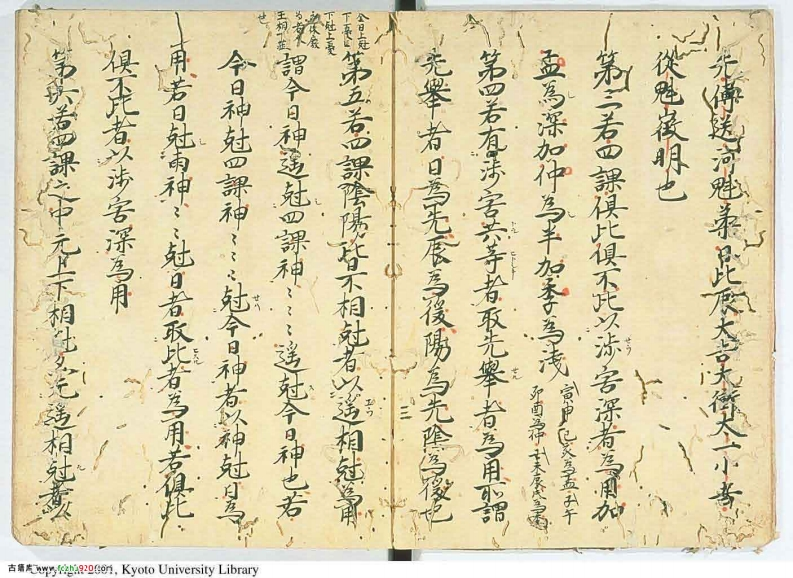 先傳送河魁苐日比辰大吉大衝太一小吉
從魁徴明也
第三若四課俱比俱不比以涉害深者為用加
孟為深加仲為半加季為淺
寅申巳亥為孟子午
卯酉為仲丑未辰戌為季
第四若有涉害共等者取先舉者為用所謂
先舉者日為先辰為後陽為先陰為後也
三
第五若四課陰陽皆不相尅者以遥相尅為用
謂今日神遥尅四課神〻〻〻遥尅今日神也若
今日神尅四課神〻〻〻尅今日神者以神尅日為
用若日尅兩神〻〻尅日者取比者為用若俱比
俱不比者以涉害深為用
第六若四課之中元上下相尅又元遥相尅者以
Copyright 2001, Kyoto University Library